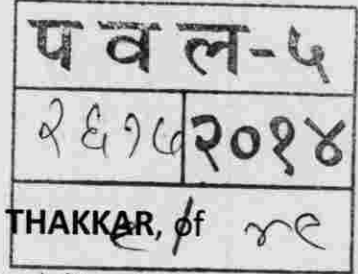 प व ल-५
२६१७ २०१४
THAKKAR, of ४९